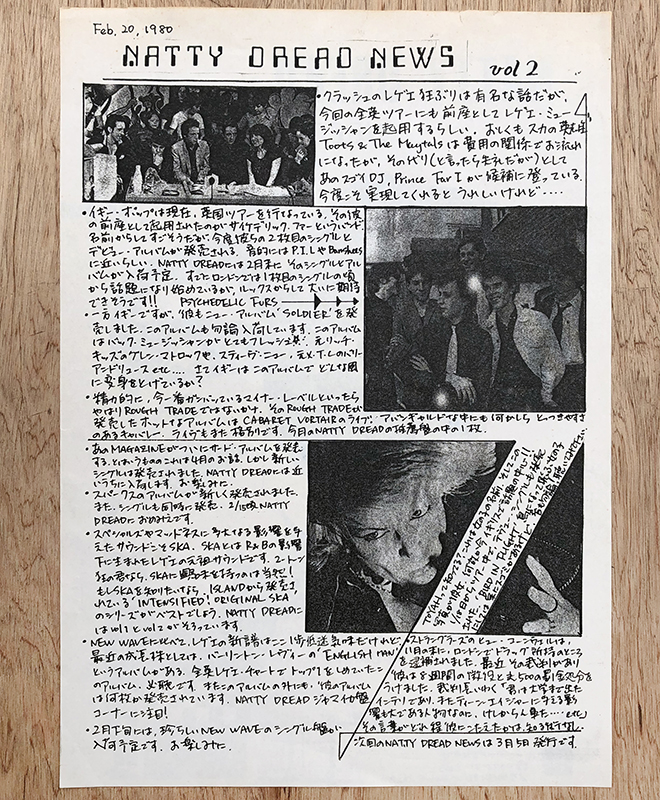 Feb. 20, 1980
NATTY DREAD NEWS
vol 2
・クラッシュのレゲエ狂ぶりは有名な話だが、
今回の全英ツアーにも前座としてレゲエ・ミュー
ジッシャンを起用するらしい。おしくもスカの
Toots & The Maytals は費用の関係でお流れ
になったが、その代り(と言ったら失礼だが)として
あのスゴイDJ, Prince Far I が候補に登っている。
今度こそ実現してくれると うれしいけれど‥‥
・イギー・ポップは現在、英国ツアーを行なっている。その彼
の前座として起用されたのがサイケデリック・ファーというバンド。
名前からしてすごそうだが、今度彼らの2枚目のシングルと
デビュー・アルバムが発売される。音的にはP.I.LやBanshees
に近いらしい。NATTY DREADには2月末に そのシングルとアル
バムが入荷予定。すでにロンドンでは1枚目のシングルの頃
から話題になり始めているが、ルックスからして大いに期待
できそうです!! PSYCHEDELIC FURS
・一方イギーですが、彼もニュー・アルバム 'SOLDIER' を発
売しました。このアルバムも勿論入荷しています。このアルバム
はバック・ミュージシャンがとてもフレッシュ 元リッチ・
キッズのグレン・マトロックや、スティーヴ・ニュー、元X.T.Cのバリー・
アンドリュース etc.... さてイギーはこのアルバムでどんな風
に変身をとげているか?
・精力的に、今一番ガンバっているマイナー・レーベルといったら
やはりROUGH TRADEではないかナ。そのROUGH TRADEが
発売したホットなアルバムは CABARET VORTAIRのライブ。アバンギャルドな中にも何かしら とっつきやすさ
のあるキャバレー。ライヴもまた格別です。今月のNATTY DREADの推薦盤の中の1枚。
・あのMAGAZINEがついにサード・アルバムを発売
する。というもののこれは4月のお話。しかし新しい
シングルは発売されました。NATTY DREADには近
いうちに入荷します。お楽しみに。
・スパークスのアルバムが新しく発売されました。
また、シングルも同時に発売。2/1頃NATTY
DREADにおめみえです。
・スペシャルズやマッドネスに多大なる影響を与
えたサウンドこそSKA。SKAとはR&Bの影響
下に生まれたレゲエの元祖サウンドです。2-トーン
狂の君なら、SKAに興味を持つのは当然!
もしSKAを知りたいなら、ISLANDから発売さ
れている 'INTENSIFIED! ORIGINAL SKA'
のシリーズがベストでしょう。NATTY DREADに
はvol 1とvol 2がそろっています。
・NEW WAVEに比べて、レゲエの新譜はここ1ヶ月低迷気味だけれど、
最近の成長株としては、バーリントン・レヴィーの 'ENGLISH MAN'
というアルバムがある。全英レゲエ・チャートでトップ1をしめていた
のアルバム、必聴です。またこのアルバムの外にも、彼のアルバム
は何枚か発売されています。NATTY DREADジャマイカ盤
コーナーに注目!
・2月下旬には、珍らしいNEW WAVEのシングル盤が
入荷予定です。お楽しみに。
TOYAHって知ってる?これは女の子の名前、そしてこの
BIRD IN FLIGHT
・ストラングラーズのヒュー・コーンウェルは、
11月の末に、ロンドンでドラッグ所持のところ
を逮捕されました。最近 その裁判があり
彼は8週間の懲役と £500の罰金処分を
うけました。裁判長いわく「君は大学まで出た
インテリであり、またティーン・エイジャーに与える影
響も大である人物なのに、けしからん 」
その言葉がどれ程彼にこたえたかは、知る術がない。
次回のNATTY DREAD NEWSは3月5日発行です。